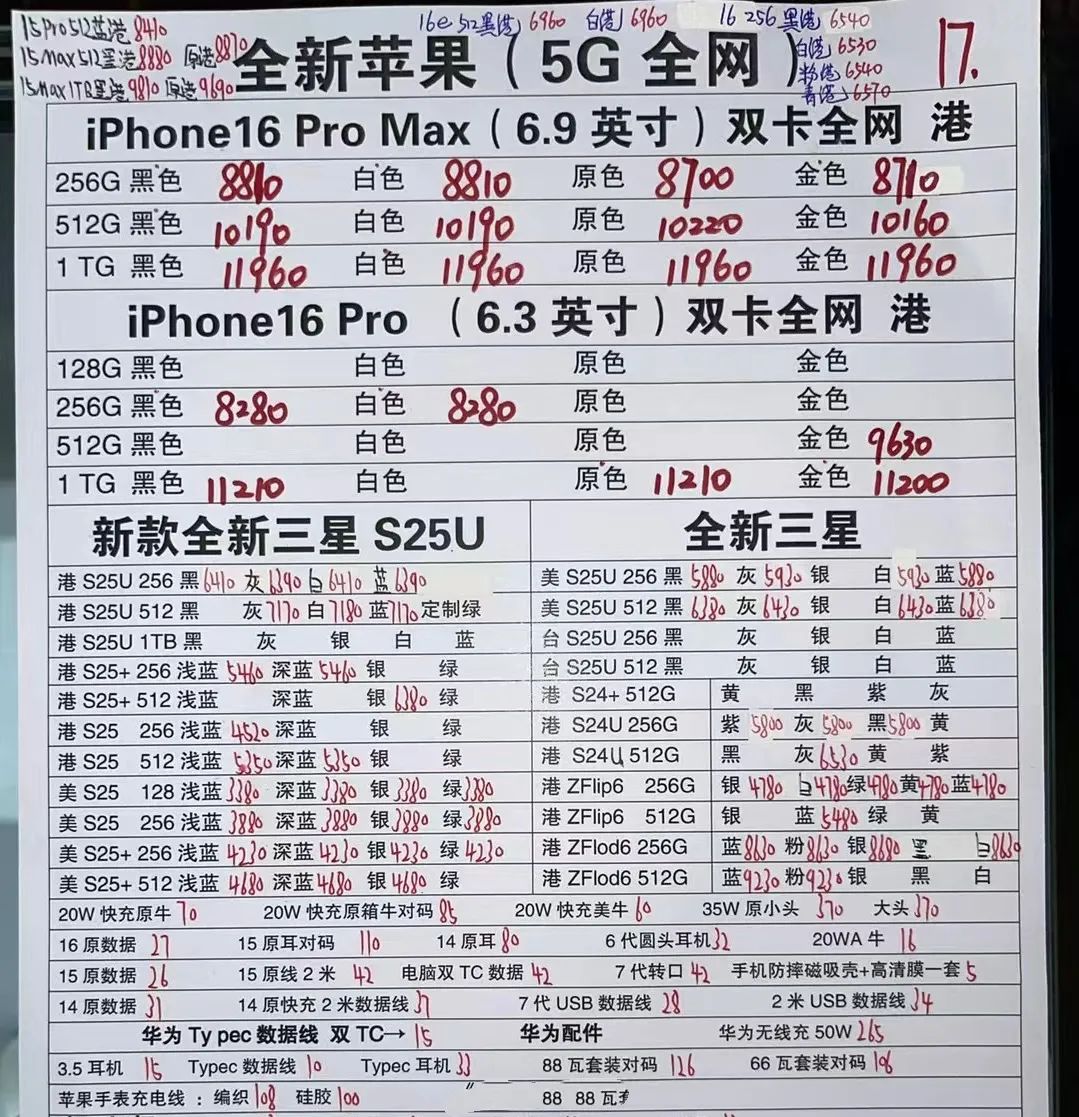 15Pro512蓝港8410
15Max512黑港8880 原港8870
15Max1TB黑港9810 原港9690
16e 512黑港)6960 白港)6960 16 256 黑港)6540
白港)6530
粉港)6540
青港)6570
17.
全新苹果（5G 全网）
iPhone16 Pro Max（6.9 英寸）双卡全网 港
256G 黑色 8810 白色 8810 原色 8700 金色 8710
512G 黑色 10190 白色 10190 原色 10220 金色 10160
1 TG 黑色 11960 白色 11960 原色 11960 金色 11960
iPhone16 Pro （6.3 英寸）双卡全网 港
128G 黑色 白色 原色 金色
256G 黑色 8280 白色 8280 原色 金色
512G 黑色 白色 原色 金色 9630
1 TG 黑色 11210 白色 原色 11210 金色 11200
新款全新三星 S25U
港 S25U 256 黑6410 灰6390 白6410 蓝6390
港 S25U 512 黑 灰7170 白7180 蓝7170 定制绿
港 S25U 1TB 黑 灰 银 白 蓝
港 S25+ 256 浅蓝 5460 深蓝 5460 银 绿
港 S25+ 512 浅蓝 深蓝 银 6380 绿
港 S25 256 浅蓝 4520 深蓝 银 绿
港 S25 512 浅蓝 5350 深蓝 5350 银 绿
美 S25 128 浅蓝 3380 深蓝 3380 银 3380 绿3380
美 S25 256 浅蓝 3880 深蓝 3880 银3880 绿3880
美 S25+ 256 浅蓝 4230 深蓝 4230 银4230 绿 4230
美 S25+ 512 浅蓝 4680 深蓝 4680 银 4680 绿
全新三星
美 S25U 256 黑 5880 灰 5930 银 白 5930 蓝 5880
美 S25U 512 黑 6380 灰 6430 银 白 6430 蓝 6380
台 S25U 256 黑 灰 银 白 蓝
台 S25U 512 黑 灰 银 白 蓝
港 S24+ 512G 黄 黑 紫 灰
港 S24U 256G 紫 5800 灰 5800 黑5800 黄
港 S24U 512G 黑 灰 6530 黄 紫
港 ZFlip6 256G 银 4780 白4780 绿4780 黄4780 蓝4780
港 ZFlip6 512G 银 蓝 5480 绿 黄
港 ZFlod6 256G 蓝8630 粉8630 银8680 黑 白8630
港 ZFlod6 512G 蓝9230 粉9230 银 黑 白
20W 快充原牛 70 20W 快充原箱牛对码 85 20W 快充美牛 60 35W 原小头 370 大头 370
16 原数据 27 15 原耳对码 110 14 原耳 80 6 代圆头耳机 32 20WA 牛 16
15 原数据 26 15 原线 2 米 42 电脑双 TC 数据 42 7 代转口 42 手机防摔磁吸壳+高清膜一套 5
14 原数据 31 14 原快充 2 米数据线 37 7 代 USB 数据线 28 2 米 USB 数据线 34
华为 Ty pec 数据线 双 TC→ 15 华为配件 华为无线充 50W 265
3.5 耳机 15 Typec 数据线 10 Typec 耳机 33 88 瓦套装对码 126 66 瓦套装对码 106
苹果手表充电线 ：编织 108 硅胶 100 88 88 瓦